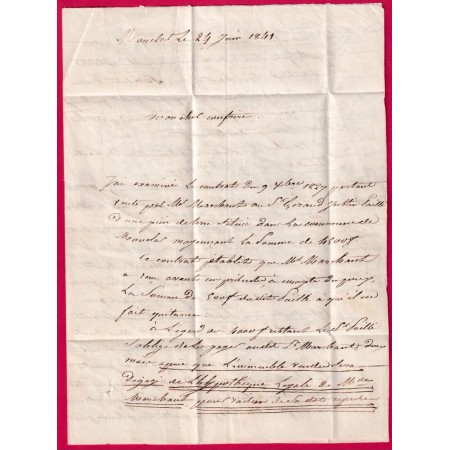 Monclar le 24 Juin 1841
Mon cher confrère.
J'ai examiné le contrat du 9 Xbre 1837 portant
vente par Mr Marchant au Sr Gérand Justin Paille
d'une pièce de terre située dans la commune de
Monclar moyennant la Somme de 4500f
Ce contrat établit que Mr Marchant
a reçu avant en présente à compte du prix
La Somme de 500f du dit Paille à qui il en
fait quittance
à l'égard des 4000f restant le Sr Paille
s'oblige de les payer audit Sr Marchant deux
mois après que l'immeuble vendu sera
dégagé de l'hypothèque Légale de Mme
Marchant pour raison de sa dot